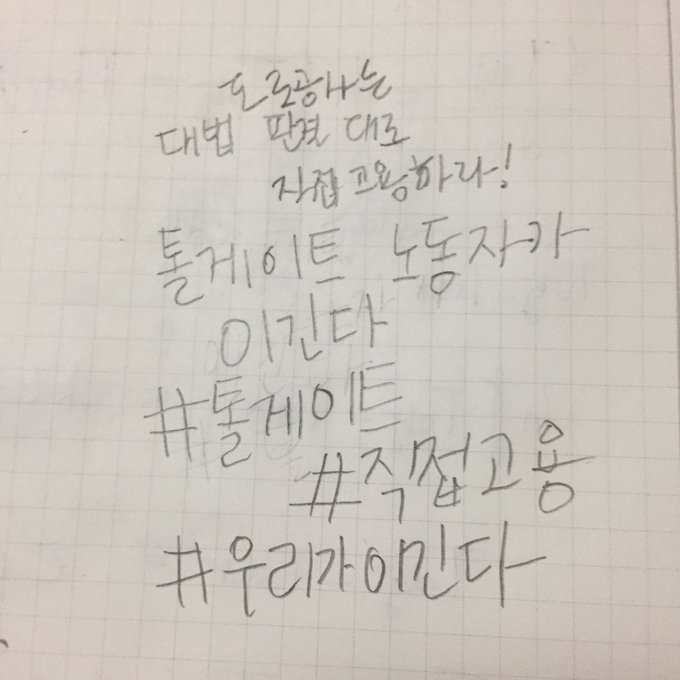 도로공사는
대법 판결 대로
직접 고용하라!
톨게이트 노동자가
이긴다
#톨게이트
#직접고용
#우리가이긴다